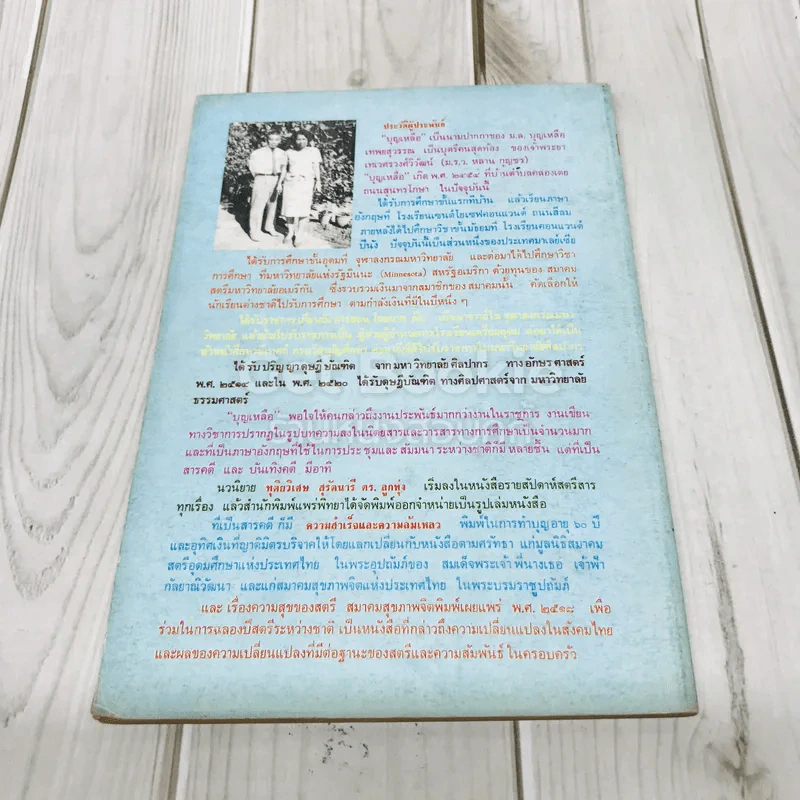 ประวัติผู้ประพันธ์
"บุญเหลือ" เป็นนามปากกาของ ม.ล. บุญเหลือ
เทพยสุวรรณ เป็นบุตรีคนสุดท้อง ของเจ้าพระยา
เทเวศรวงศ์วิวัฒน์ (ม.ร.ว. หลาน กุญชร)
"บุญเหลือ" เกิด พ.ศ. ๒๔๕๔ ที่บ้านตำบลคลองเตย
ถนนสุนทรโกษา ในปัจจุบันนี้
ได้รับการศึกษาชั้นแรกที่บ้าน แล้วเรียนภาษา
อังกฤษที่ โรงเรียนเซนต์โยเซฟคอนแวนต์ ถนนสีลม
ภายหลังได้ไปศึกษาวิชาชั้นมัธยมที่ โรงเรียนคอนแวนต์
ปีนัง ปัจจุบันนี้เป็นส่วนหนึ่งของประเทศมาเลย์เซีย
ได้รับการศึกษาชั้นอุดมที่ จุฬาลงกรณมหาวิทยาลัย และต่อมาได้ไปศึกษาวิชา
การศึกษา ที่มหาวิทยาลัยแห่งรัฐมินนะ (Minnesota) สหรัฐอเมริกา ด้วยทุนของ สมาคม
สตรีมหาวิทยาลัยอเมริกัน ซึ่งรวบรวมเงินมาจากสมาชิกของ สมาคมนั้น คัดเลือกให้
นักเรียนต่างชาติไปรับการศึกษา ตามกำลังเงินที่มีในปีหนึ่ง ๆ
ได้รับปริญญาดุษฎีบัณฑิต จากมหาวิทยาลัยศิลปากร ทางอักษรศาสตร์
พ.ศ. ๒๕๑๔ และใน พ.ศ. ๒๕๒๐ ได้รับดุษฎีบัณฑิต ทางศิลปศาสตร์จาก มหาวิทยาลัย
ธรรมศาสตร์
"บุญเหลือ" พอใจให้คนกล่าวถึงงานประพันธ์มากกว่างานในราชการ งานเขียน
ทางวิชาการปรากฏในรูปบทความลงในนิตยสารและวารสารทางการศึกษาเป็นจำนวนมาก
และที่เป็นภาษาอังกฤษที่ใช้ในการประชุมและ สัมมนา ระหว่างชาติก็มี หลายชิ้น แต่ที่เป็น
สารคดี และ บันเทิงคดี มีอาทิ
นวนิยาย ทุติยวิเศษ สุรัตนารี ดร. ลูกทุ่ง เริ่มลงในหนังสือรายสัปดาห์สตรีสาร
ทุกเรื่อง แล้วสำนักพิมพ์แพร่พิทยาได้จัดพิมพ์ออกจำหน่ายเป็นรูปเล่มหนังสือ
ที่เป็นสารคดี ก็มี ความสำเร็จและความล้มเหลว พิมพ์ในการทำบุญอายุ ๖๐ ปี
และอุทิศเงินที่ญาติมิตรบริจาคให้โดยแลกเปลี่ยนกับหนังสือตามศรัทธา แก่มูลนิธิสมาคม
สตรีอุดมศึกษาแห่งประเทศไทย ในพระอุปถัมภ์ของ สมเด็จพระเจ้าพี่นางเธอ เจ้าฟ้า
กัลยาณิวัฒนา และแก่สมาคมสุขภาพจิตแห่งประเทศไทย ในพระบรมราชูปถัมภ์
และ เรื่องความสุขของสตรี สมาคมสุขภาพจิตพิมพ์เผยแพร่ พ.ศ. ๒๕๑๘ เพื่อ
ร่วมในการฉลองปีสตรีระหว่างชาติ เป็นหนังสือที่กล่าวถึงความเปลี่ยนแปลงในสังคมไทย
และผลของความเปลี่ยนแปลงที่มีต่อฐานะของสตรีและความสัมพันธ์ ในครอบครัว